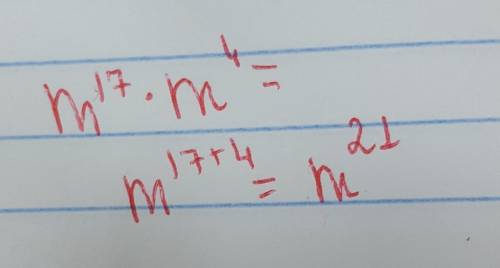 m¹⁷ · m⁴ =
m¹⁷⁺⁴ = m²¹